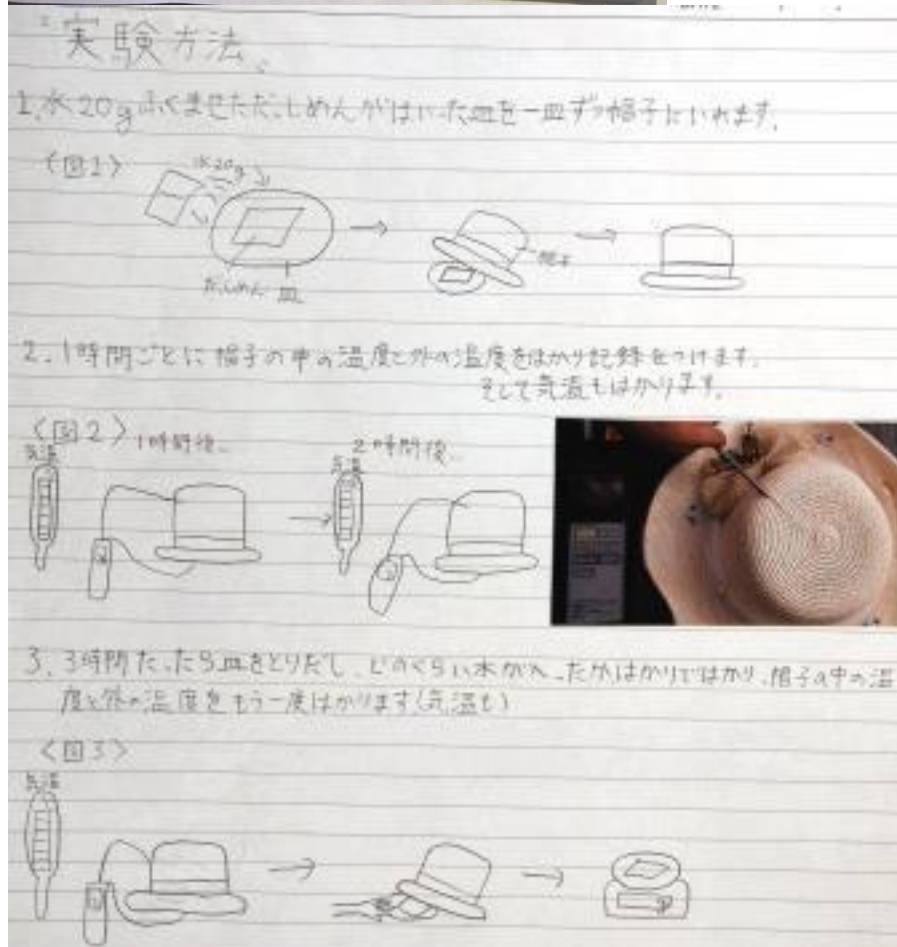 "実験方法"
1.水20gふくませただっしめんがはいった皿を一皿ずつ帽子にいれます。
〈図1〉
水20g
だっしめん 皿
帽子
2.1時間ごとに帽子の中の温度と外の温度をはかり記録をつけます。
そして気温もはかります。
〈図2〉1時間後、 2時間後、
気温 気温
3.3時間たったら皿をとりだし、どのくらい水がへったかはかりではかり、帽子の中の温
度と外の温度をもう一度はかります(気温も)
〈図3〉
気温